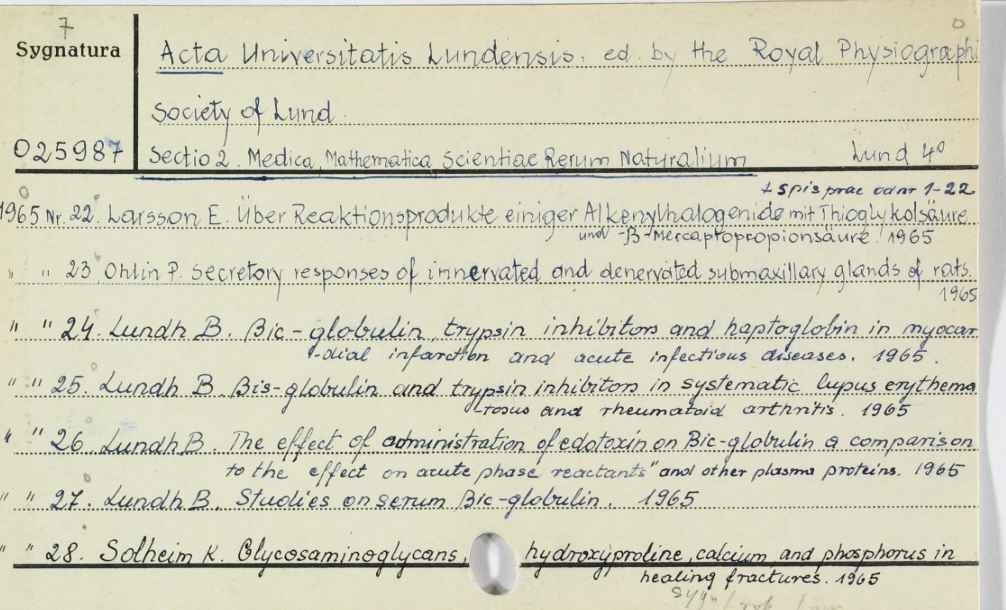 7
Sygnatura
Acta Universitatis Lundensis. ed. by the Royal Physiographi
Society of Lund
025987
Sectio 2. Medica, Mathematica, Scientiae Rerum Naturalium Lund 4°
+ spis prac od nr 1-22
1965 Nr. 22. Larsson E. Über Reaktionsprodukte einiger Alkenylhalogenide mit Thioglykolsäure
und -β-Mercaptopropionsäure. 1965
" " 23 Ohlin P. Secretory responses of innervated and denervated submaxillary glands of rats.
1965
" " 24. Lundh B. Bic-globulin, trypsin inhibitors and haptoglobin in myocar
-dial infarction and acute infectious diseases. 1965.
" " 25. Lundh B. Bis-globulin and trypsin inhibitors in systematic lupus erythema
tosus and rheumatoid arthritis. 1965
" " 26. Lundh B. The effect of administration of edotoxin on Bic-globulin a comparison
to the effect on acute phase reactants" and other plasma proteins. 1965
" " 27. Lundh B. Studies on serum Bic-globulin. 1965
" " 28. Solheim K. Glycosaminoglycans, hydroxyproline, calcium and phosphorus in
healing fractures. 1965